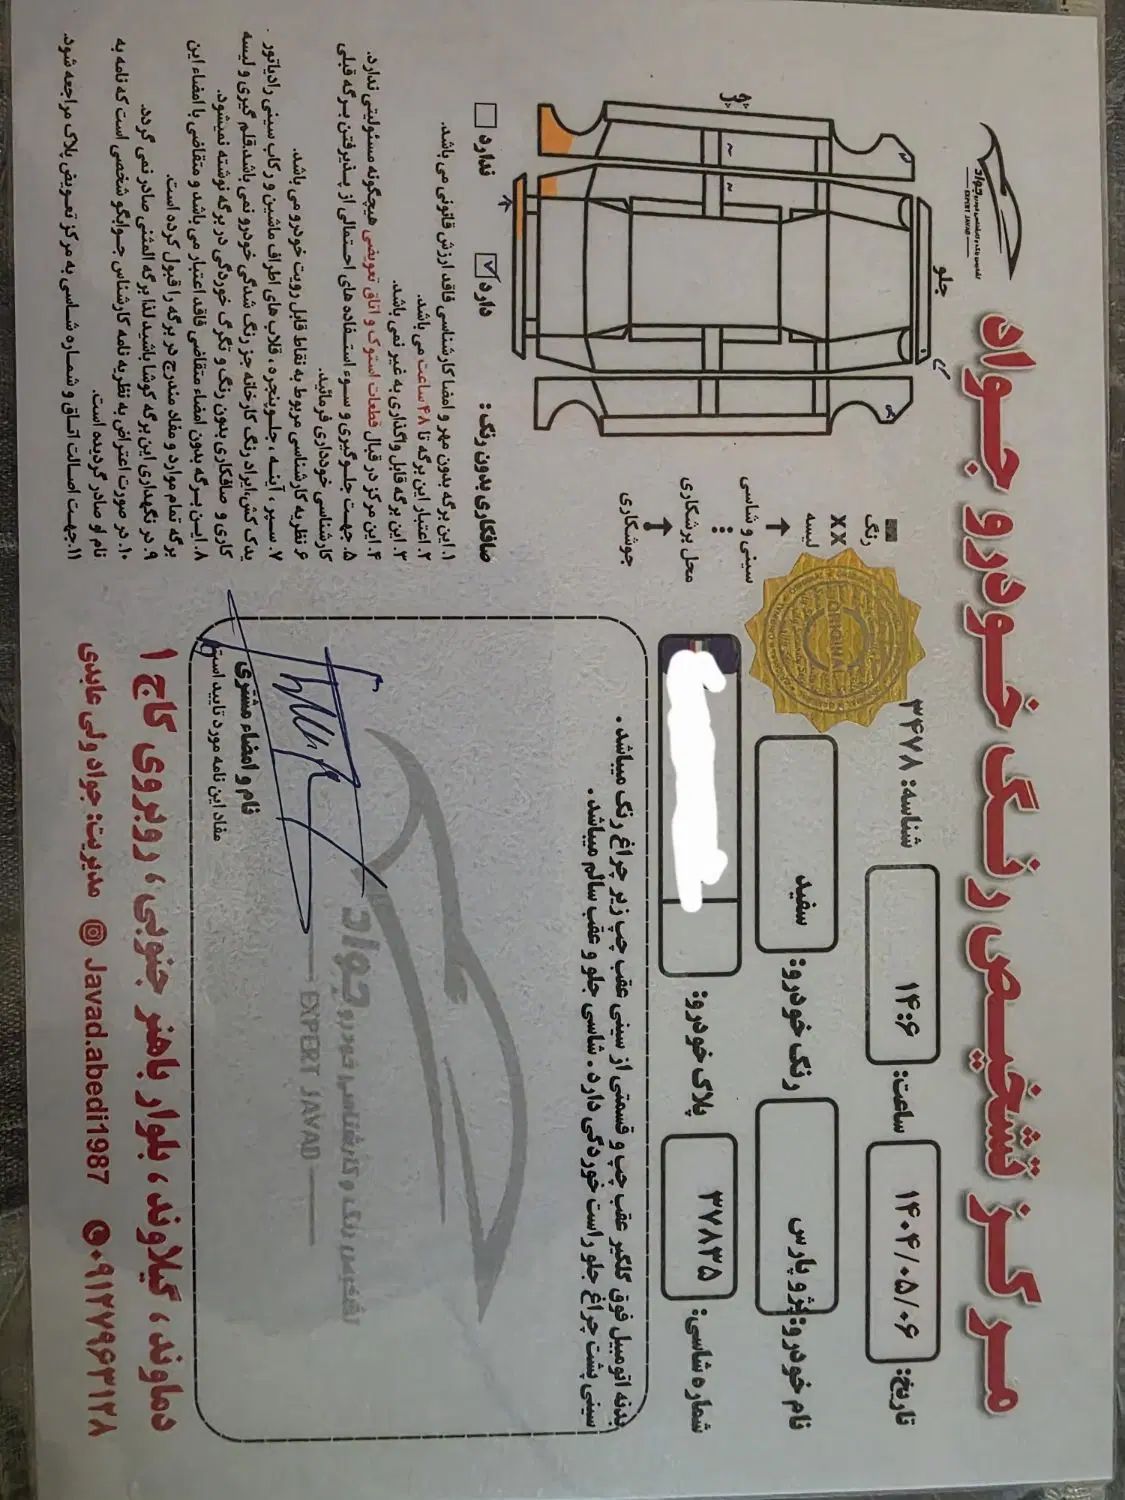 مرکز تشخیص رنگ خودرو جواد
تشخیص رنگ و کارشناسی خودرو جواد
EXPERT JAVAD
تاریخ: ۱۴۰۴/۰۵/۰۶
ساعت: ۱۴:۶
شناسه: ۳۴۷۸
نام خودرو: پژو پارس
رنگ خودرو: سفید
شماره شاسی: ۳۷۸۳۵
پلاک خودرو:
ORIGINAL
بدنه اتومبیل فوق گلگیر عقب چپ و قسمتی از سینی عقب چپ زیر چراغ رنگ میباشد.
سینی پشت چراغ جلو راست خوردگی دارد. شاسی جلو و عقب سالم میباشد.
تشخیص رنگ و کارشناسی خودرو جواد
EXPERT JAVAD
نام و امضاء مشتری
مفاد این نامه مورد تایید است
رنگ
XX لیسه
سینی و شاسی
محل برشکاری
جوشکاری
جلو
صافکاری بدون رنگ: دارد ☑ ندارد ☐
۱. این برگه بدون مهر و امضا کارشناسی فاقد ارزش قانونی می باشد.
۲. اعتبار این برگه تا ۴۸ ساعت می باشد.
۳. این برگه قابل واگذاری به غیر نمی باشد.
۴. این مرکز در قبال قطعات استوک و اتاق تعویضی هیچگونه مسئولیتی ندارد.
۵. جهت جلوگیری و سوء استفاده های احتمالی از پذیرفتن برگه قبلی
کارشناسی خودداری فرمائید.
۶. نظریه کارشناسی مربوط به نقاط قابل رویت خودرو می باشد.
۷. سپر، آینه، جلوپنجره، قلاب های اطراف ماشین و رکاب سینی رادیاتور
یدک کش، ایراد رنگ کارخانه جز رنگ شدگی خودرو نمی باشد. قلم گیری و لیسه
کاری و صافکاری بدون رنگ و تگرگ خوردگی در برگه نوشته نمیشود.
۸. این برگه بدون امضاء متقاضی فاقد اعتبار می باشد و متقاضی با امضاء این
برگه تمام موارد و مفاد مندرج در برگه را قبول کرده است.
۹. در نگهداری این برگه کوشا باشید لذا برگه المثنی صادر نمی گردد.
۱۰. در صورت اعتراض به نظریه نامه کارشناس جوابگو شخصی است که نامه به
نام او صادر گردیده است.
۱۱. جهت اصالت اتاق و شماره شاسی به مرکز تعویض پلاک مراجعه شود.
دماوند، گیلاوند، بلوار باهنر جنوبی، روبروی کاج ۱
مدیریت: جواد ولی عابدی Javad.abedi1987 ۰۹۱۲۷۹۶۳۱۲۸